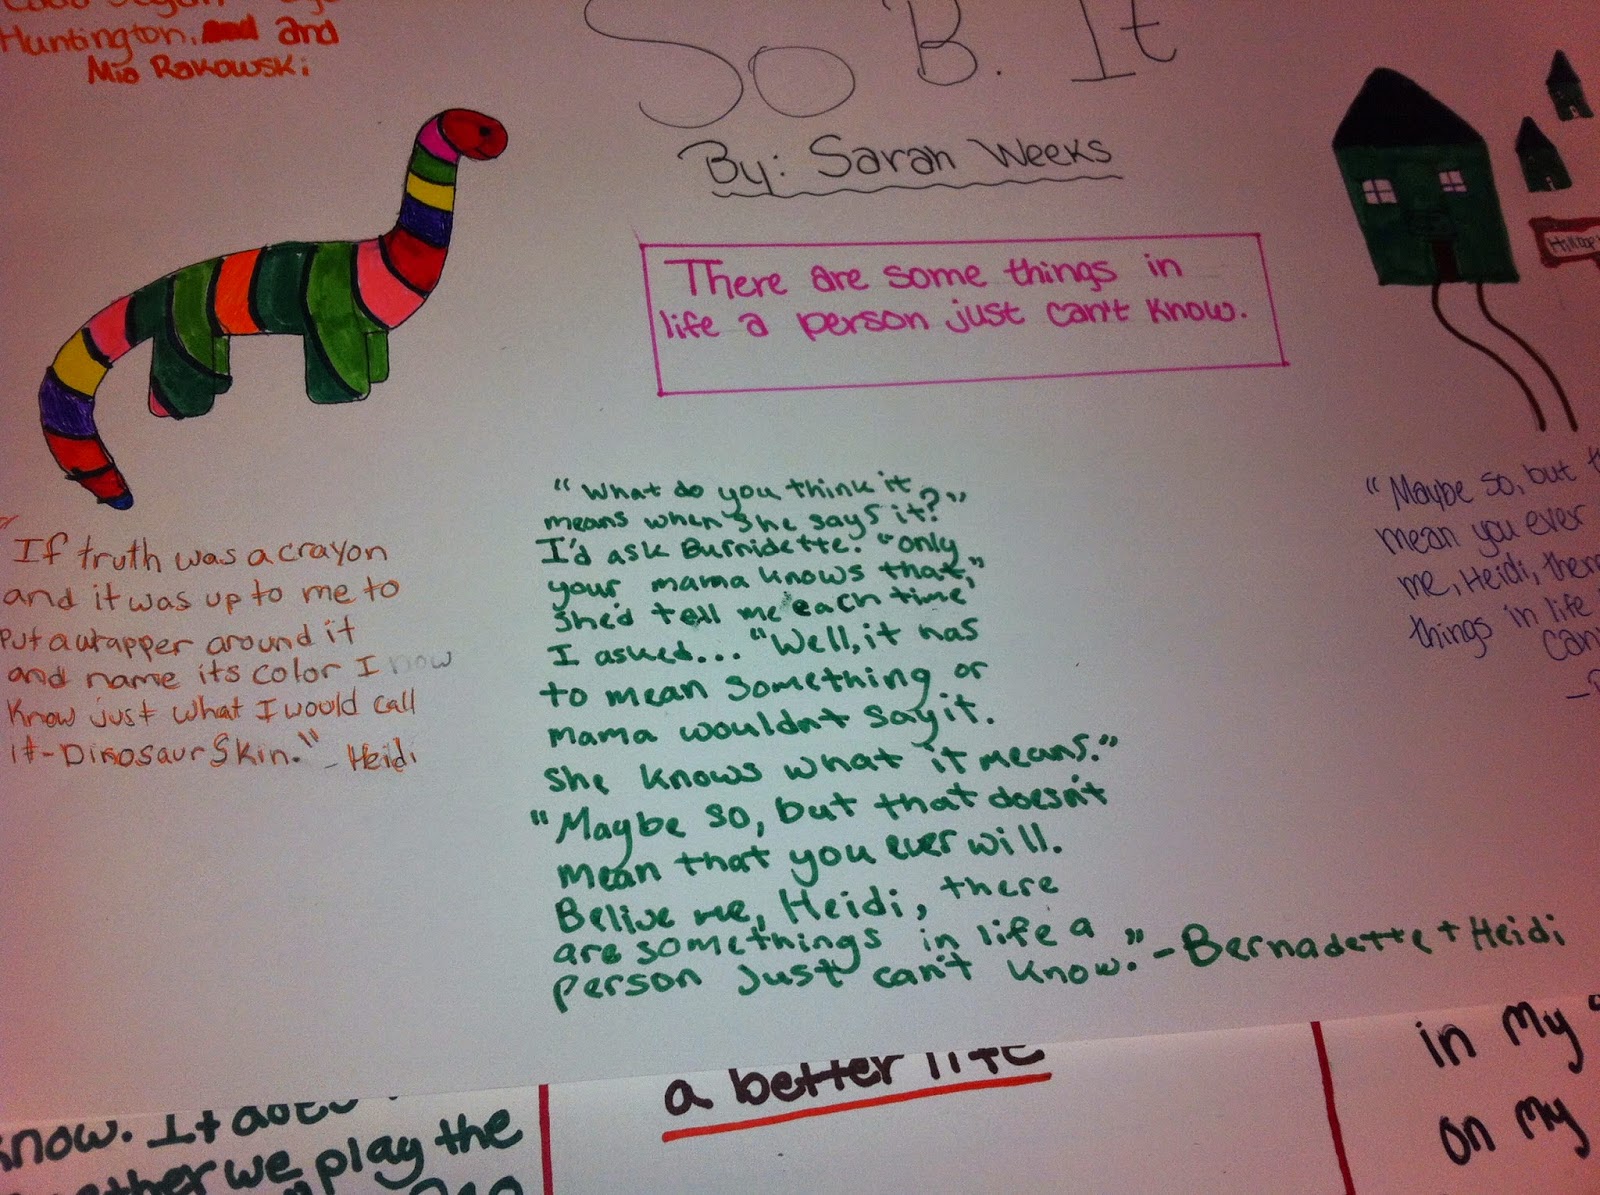 Huntington, and
Mia Rakowski
So B. It
By: Sarah Weeks
There are some things in
life a person just can't know.
"If truth was a crayon
and it was up to me to
put a wrapper around it
and name its color I now
know just what I would call
it-Dinosaur Skin." - Heidi
"What do you think it
means when she says it?"
I'd ask Burnidette. "only
your mama knows that,"
she'd tell me each time
I asked... "Well, it has
to mean something or
mama wouldn't say it.
she knows what it means."
"Maybe so, but that doesn't
mean that you ever will.
Belive me, Heidi, there
are somethings in life a
person just can't know." - Bernadette + Heidi
"Maybe so, but
mean you ever
me, Heidi, there
things in life
a better life
know. It does
we play the
in my
on my